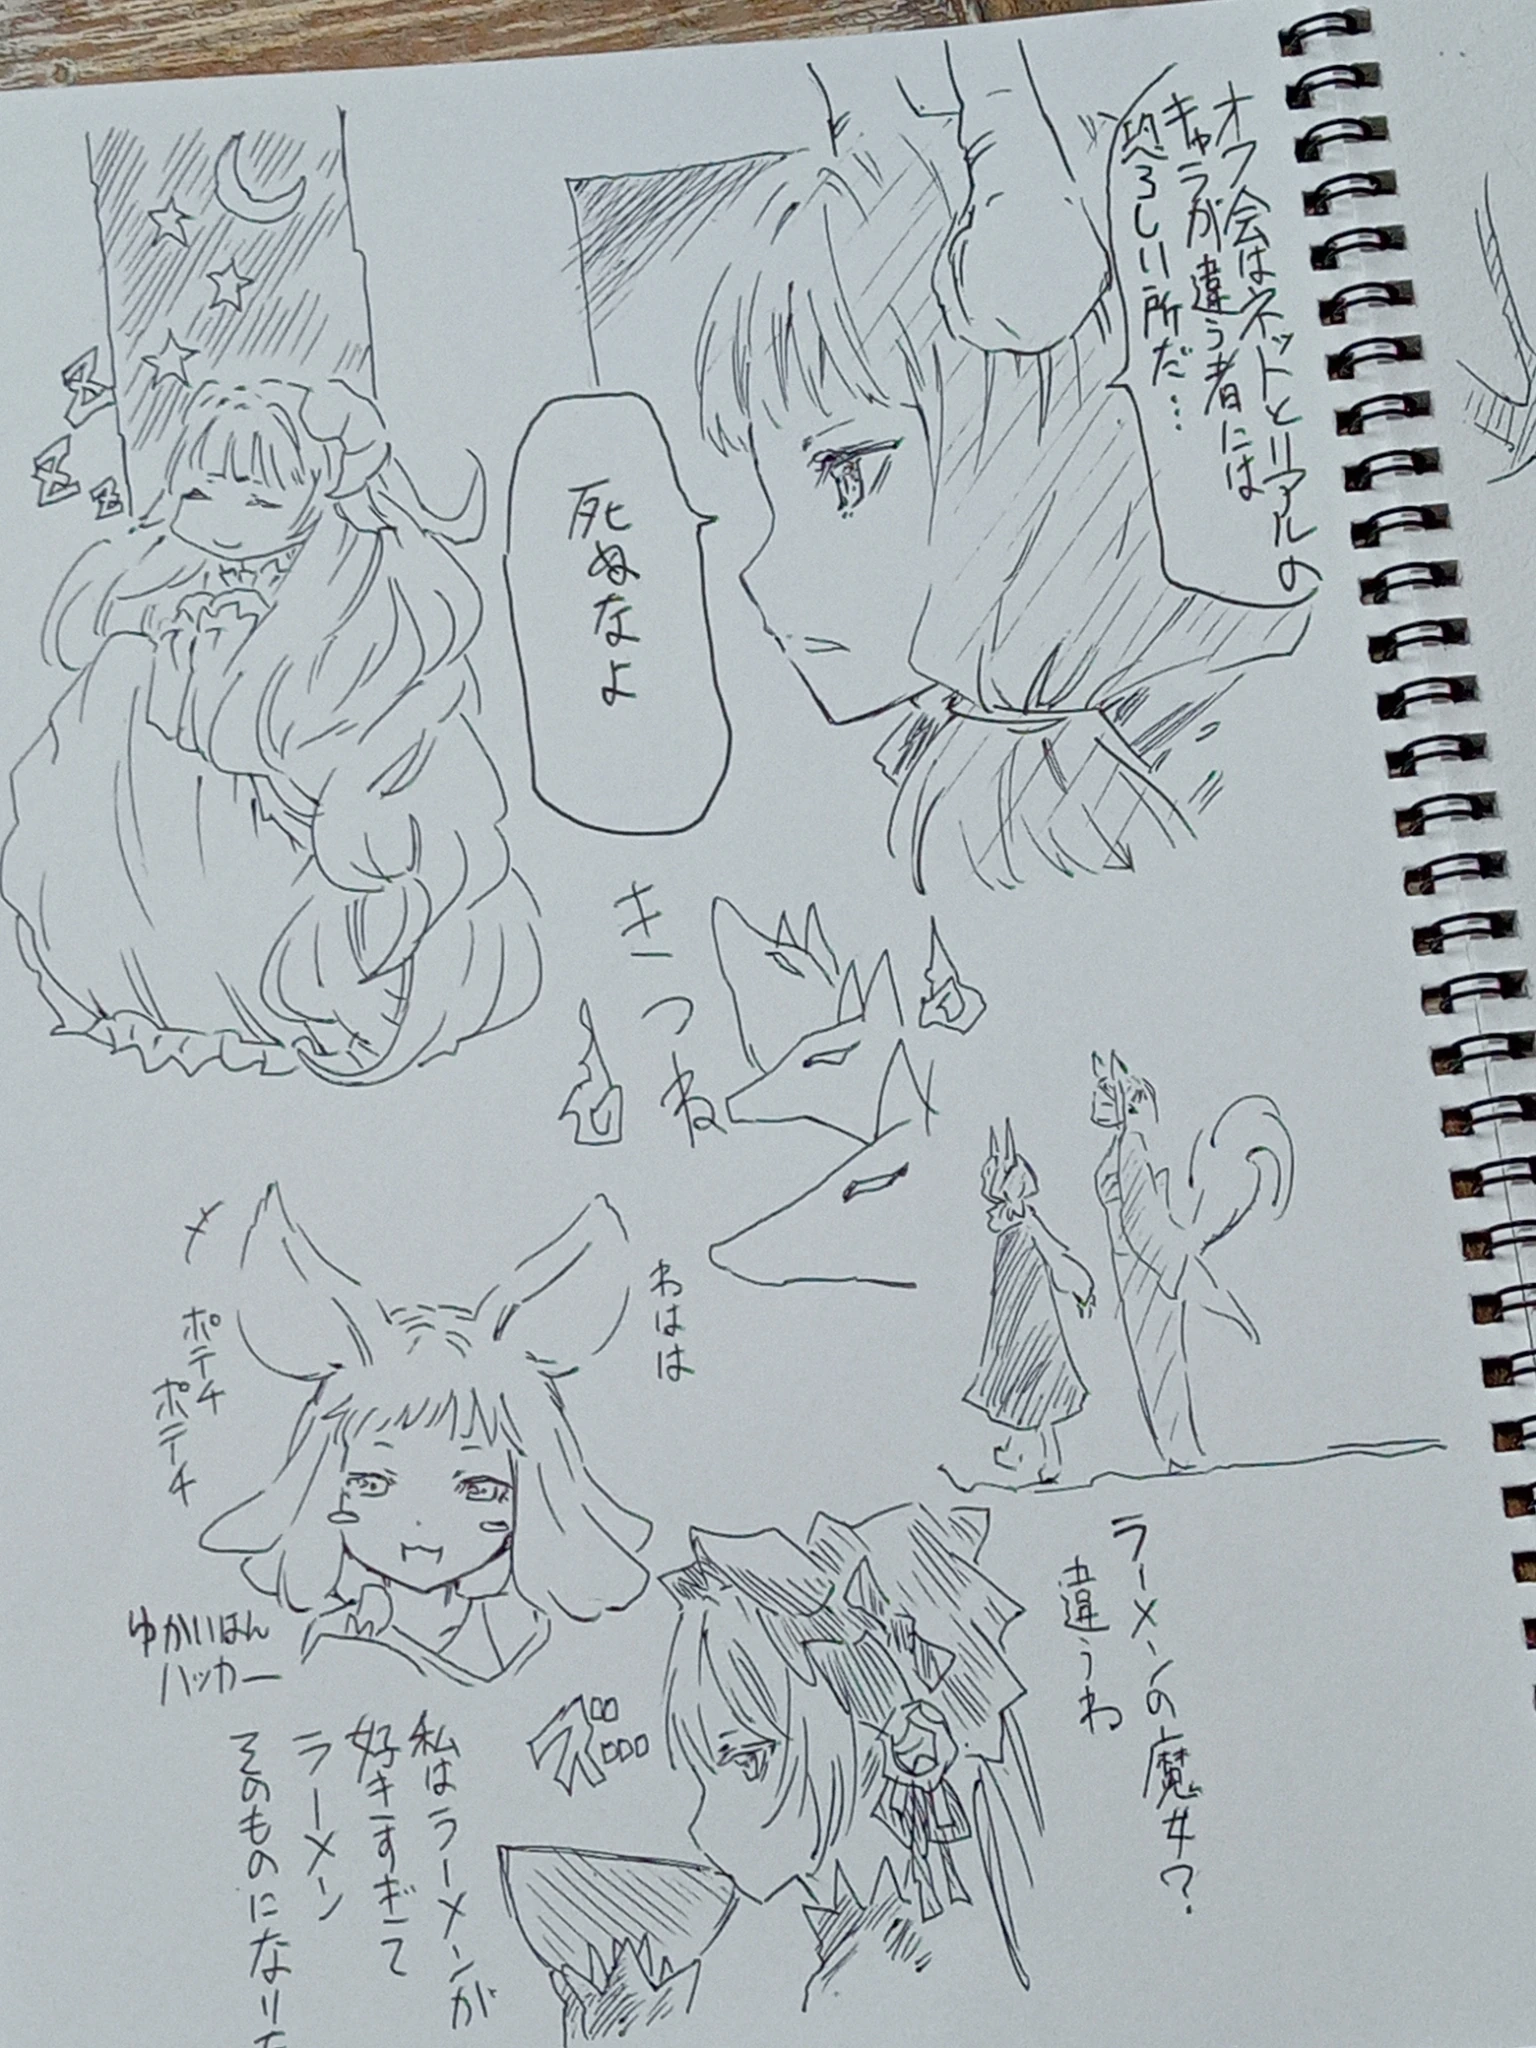 オフ会はネットとリアルの
キャラが違う者には
恐ろしい所だ…
死ぬなよ
きつね
わはは
ポテチ
ポテチ
ゆかいはん
ハッカー
ラーメンの魔女?
違うわ
ズ
私はラーメンが
好きすぎて
ラーメン
そのものになりた